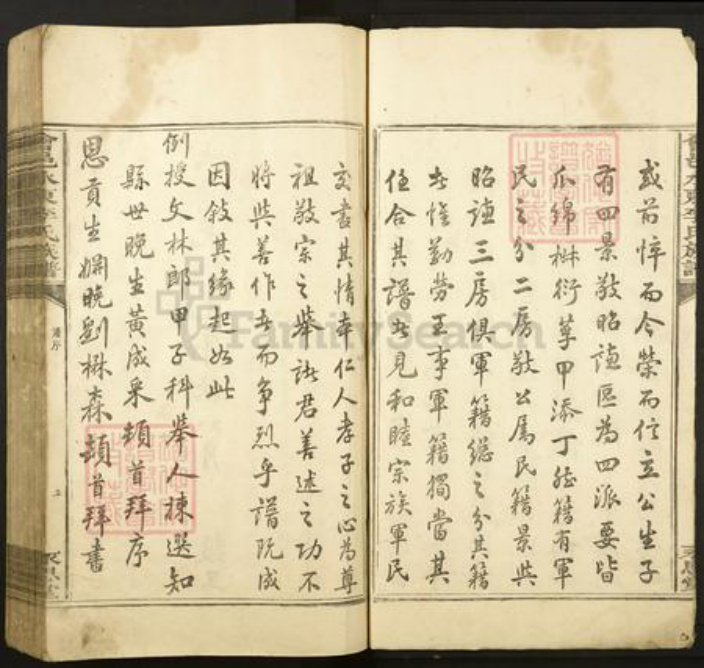 或前悴而今榮而信立公生子
有四景敬昭謙區為四派要皆
瓜綿椒衍莩甲添丁然籍有軍
民之分二房敬公属民籍景與
昭謙三房俱軍籍總之分其籍
者惟勤劳王事軍籍獨當其
任合其譜者見和睦宗族軍民
交書其情本仁人孝子之心為尊
祖敬宗之舉諸君善述之功不
將與善作者而争烈乎譜既成
因敍其緣起如此
例授文林郎甲子科舉人棟選知
縣世晚生黄成采頓首拜序
恩貢生姻晚劉楙森頓首拜書
會邑水東李氏族譜
譜序
FamilySearch